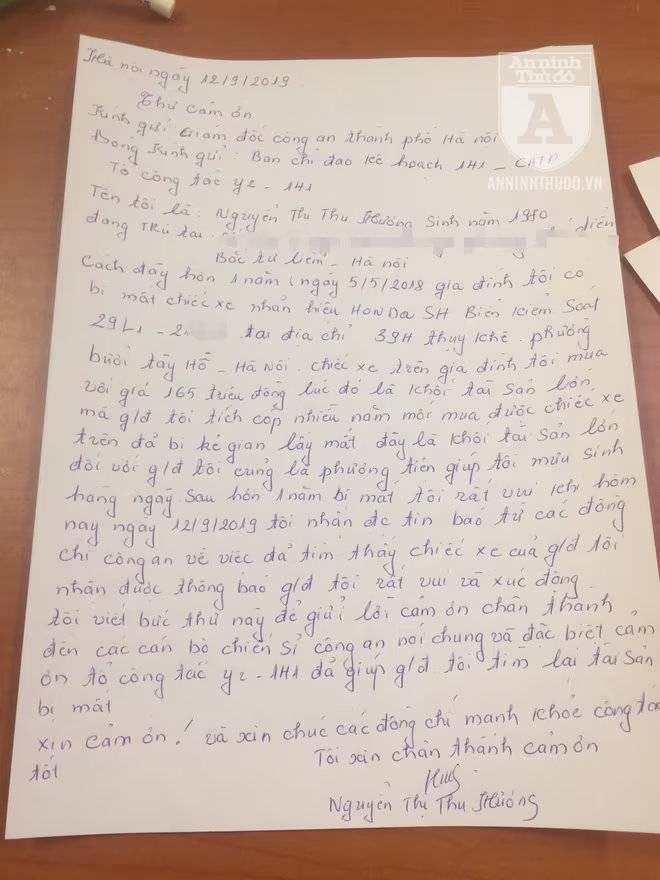 An ninh
Thủ đô
A
ANNINHTHUDO.VN
Hà nội ngày 12/9/2019
Thư cảm ơn
Kính gửi: Giám đốc công an thành phố Hà nội
Đồng Kính gửi: Ban chỉ đạo kế hoạch 141 - CATP
Tổ công tác y2 - 141
Tên tôi là: Nguyễn Thị Thu Hương Sinh năm 1970
đang Trú tại:
Bắc từ liêm - Hà nội
Cách đây hơn 1 năm (ngày 5/5/2018 gia đình tôi có
bị mất chiếc xe nhãn hiệu HONDA SH Biển kiểm Soát
29L1 - 2 tại địa chỉ 39H thụy khê. phường
bưởi tây Hồ - Hà Nội. chiếc xe trên gia đình tôi mua
với giá 165 triệu đồng lúc đó là khối tài sản lớn
mà g/đ tôi tích cóp nhiều năm mới mua được chiếc xe
trên đã bị kẻ gian lấy mất đây là khối tài sản lớn
đối với g/đ tôi cũng là phương tiện giúp tôi mưu sinh
hàng ngày sau hơn 1 năm bị mất tôi rất vui khi hôm
nay ngày 12/9/2019 tôi nhận đc tin báo từ các đồng
chí công an về việc đã tìm thấy chiếc xe của g/đ tôi
nhận được thông báo g/đ tôi rất vui và xúc động
tôi viết bức thư này để gửi lời cảm ơn chân thành
đến các cán bộ chiến sĩ công an nói chung và đặc biệt cảm
ơn tổ công tác y2 - 141 đã giúp g/đ tôi tìm lại tài sản
bị mất
xin cảm ơn! và xin chúc các đồng chí mạnh khỏe công tác
tốt
Tôi xin chân thành cảm ơn
Nguyễn Thị Thu Hương